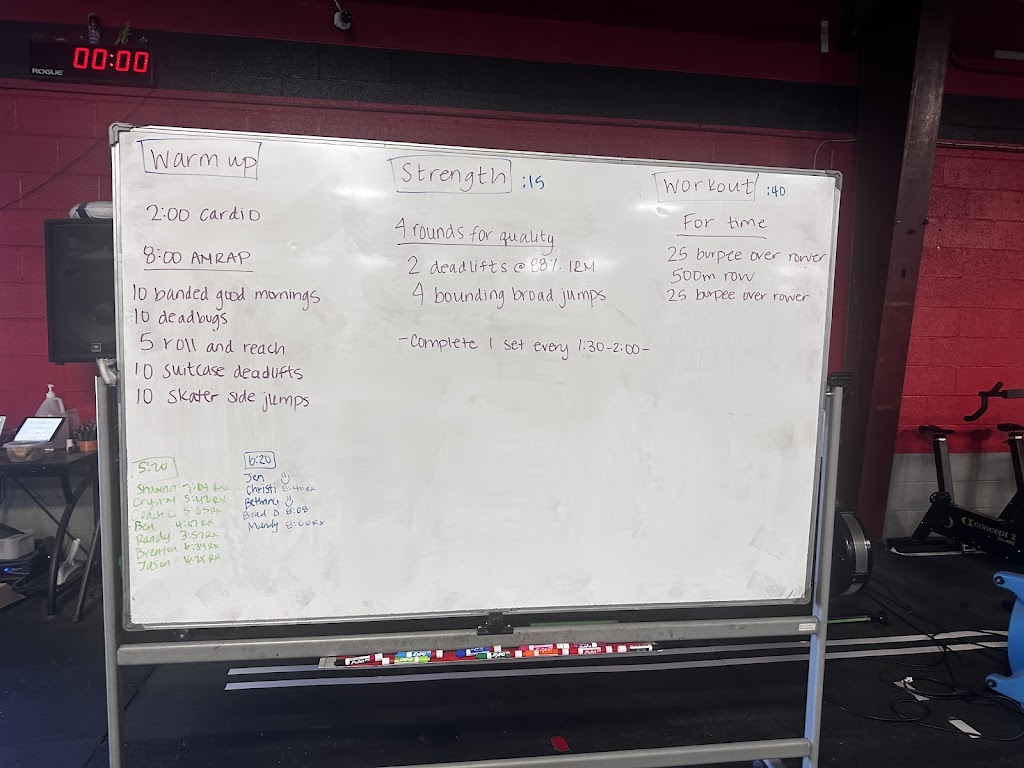 00:00
ROGUE
Warm up
2:00 cardio
8:00 AMRAP
10 banded good mornings
10 deadbugs
5 roll and reach
10 suitcase deadlifts
10 skater side jumps
Strength :15
4 rounds for quality
2 deadlifts @ 88% 1RM
4 bounding broad jumps
-Complete 1 set every 1:30-2:00-
Workout :40
For time
25 burpee over rower
500m row
25 burpee over rower
5:20
Shawna
Crystal 5:42 RX
5:05 RX
Ben RX
Randy 3:57 RX
Brenton 6:34 RX
Jason 4:28 RX
6:20
Jen
Christi RX
Bethany
Brad D 8:08
Mandy RX
concept 2